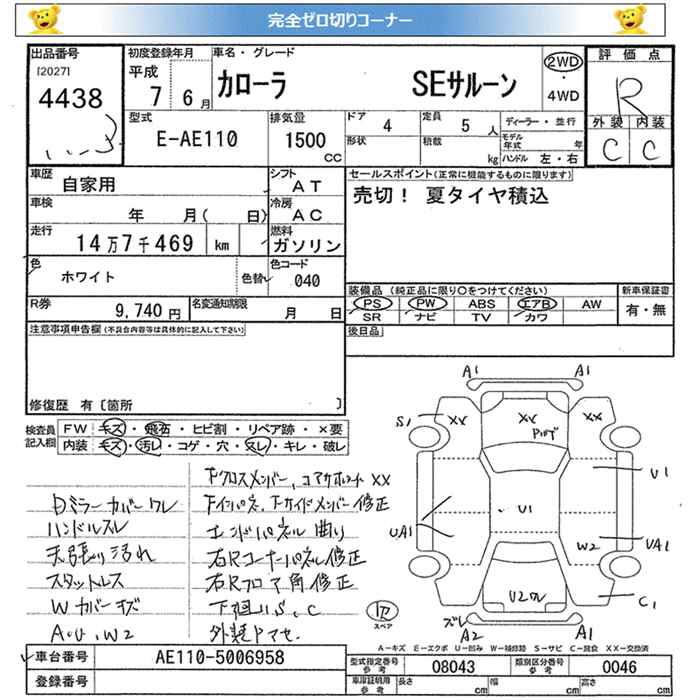 完全ゼロ切りコーナー
出品番号
[2027]
4438
初度登録年月
平成
7 6月
車名・グレード
カローラ SEサルーン
2WD
・
4WD
評価点
R
外装 内装
C C
型式
E-AE110
排気量
1500
CC
ドア 4
形状
定員 5 人
積載 kg
ディーラー・並行
モデル年式 年
ハンドル 左・右
車歴
自家用
シフト
AT
車検
年 月( 日)
冷房
AC
走行
14万7千469 km
燃料
ガソリン
色
ホワイト
色替
色コード
040
R券
9,740円
名変通知期限
月 日
セールスポイント(正常に機能するものに限ります)
売切! 夏タイヤ積込
装備品 (純正品に限り〇をつけてください)
PS PW ABS エアB AW
SR ナビ TV カワ
新車保証書
有・無
後日品
注意事項申告欄(不具合内容等は具体的に記入して下さい)
修復歴 有〔箇所 〕
検査員記入欄
FW キズ・飛石・ヒビ割・リペア跡・×要
内装 キズ・汚レ・コゲ・穴・スレ・キレ・破レ
Dミラーカバーワレ
ハンドルスレ
天張り汚れ
スタットレス
Wカバーキズ
A・U、W2
Fクロスメンバー、コアサポート XX
Fインパネ、Fサイドメンバー修正
エンドパネル曲り
右Rコーナーパネル修正
右Rフロア角修正
下廻りS、C
外装ヤマセ
A1 A1
S1 XX XX XX
U1
U1
UA1
W2 UA1
C1
ズレ
A2 A1
スペア
A-キズ E-エクボ U-凹み W-補修跡 S-サビ C-腐食 XX-交換済
車台番号
AE110-5006958
登録番号
型式指定番号
参考
08043
類別区分番号
参考
0046
車庫証明用
参考
長さ cm
幅 cm
高さ cm